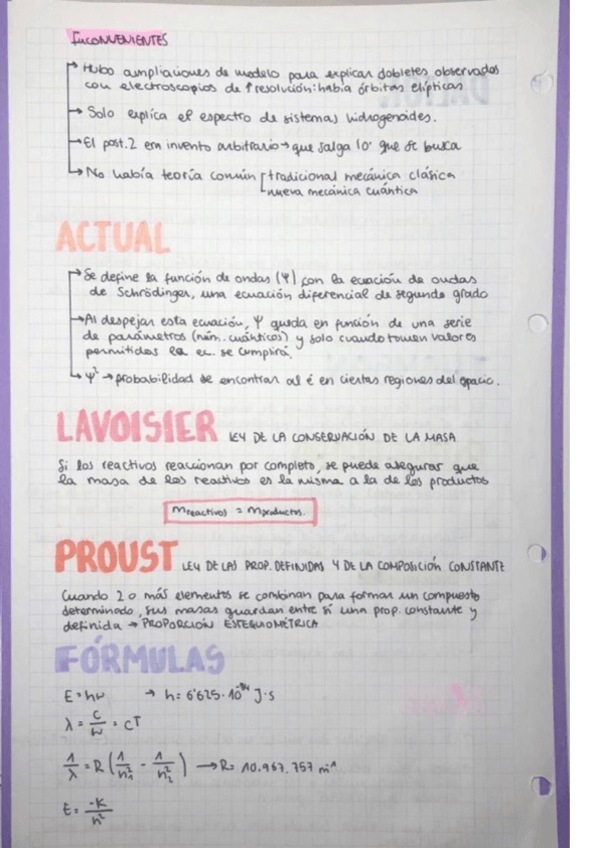 INCONVENIENTES
→ Hubo ampliaciones de modelo para explicar dobletes observados
con electroscopios de ↑ resolución: había órbitas elípticas
→ Solo explica el espectro de sistemas hidrogenoides.
→ El post. 2 era invento arbitrario → que salga lo que se busca
→ No había teoría común [tradicional mecánica clásica
nueva mecánica cuántica
ACTUAL
→ Se define la función de ondas (Ψ) con la ecuación de ondas
de Schrödinger, una ecuación diferencial de segundo grado
→ Al despejar esta ecuación, Ψ queda en función de una serie
de parámetros (núm. cuánticos) y solo cuando tomen valores
permitidos la ec. se cumplirá.
→ Ψ² → probabilidad de encontrar al é en ciertas regiones del espacio.
LAVOISIER LEY DE LA CONSERVACIÓN DE LA MASA
Si los reactivos reaccionan por completo, se puede asegurar que
la masa de los reactivos es la misma a la de los productos
mreactivos = mproductos.
PROUST LEY DE LAS PROP. DEFINIDAS Y DE LA COMPOSICIÓN CONSTANTE
Cuando 2 o más elementos se combinan para formar un compuesto
determinado, sus masas guardan entre sí una prop. constante y
definida → PROPORCIÓN ESTEQUIOMÉTRICA
FÓRMULAS
E = hν → h = 6'625·10⁻³⁴ J·s
λ = c/ν = cT
1/λ = R (1/n₁² - 1/n₂²) → R = 10.967.757 m⁻¹
E = -K/n²